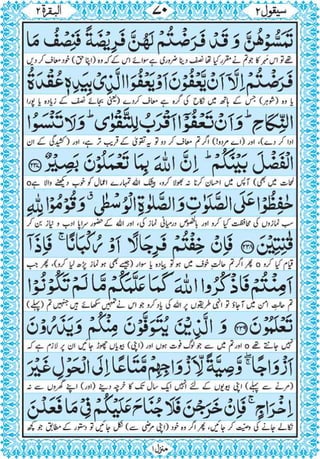 سیقول ۲
۷۰
البقرۃ ۲
تَمَسُّوْهُنَّ وَ قَدْ فَرَضْتُمْ لَهُنَّ فَرِیْضَةً فَنِصْفُ مَا
تم نے ان کا مہر مقرر کر لیا تھا تو اس مہر کا جو تم نے مقرر کیا تھا نصف دینا ضروری ہے سوائے اس کے کہ وہ (اپنا حق) خود معاف کر دیں
فَرَضْتُمْ اِلَّاۤ اَنْ یَّعْفُوْنَ اَوْ یَعْفُوَا الَّذِیْ بِیَدِهٖ عُقْدَةُ
یا وہ (شوہر) جس کے ہاتھ میں نکاح کی گرہ ہے معاف کر دے (یعنی بجائے نصف کے زیادہ یا پورا
النِّكَاحِ ؕ وَ اَنْ تَعْفُوْۤا اَقْرَبُ لِلتَّقْوٰی ؕ وَ لَا تَنْسَوُا
ادا کر دے)، اور (اے مردو!) اگر تم معاف کر دو تو یہ تقویٰ کے قریب تر ہے، اور (کشیدگی کے ان
الْفَضْلَ بَیْنَكُمْ ؕ اِنَّ اللّٰهَ بِمَا تَعْمَلُوْنَ بَصِیْرٌ ﴿۲۳۷﴾
لمحات میں بھی) آپس میں احسان کرنا نہ بھولا کرو، بیشک اللہ تمہارے اعمال کو خوب دیکھنے والا ہے o
حٰفِظُوْا عَلَی الصَّلَوٰتِ وَ الصَّلٰوةِ الْوُسْطٰی ۗ وَ قُوْمُوْا لِلّٰهِ
سب نمازوں کی محافظت کیا کرو اور بالخصوص درمیانی نماز کی، اور اللہ کے حضور سراپا ادب و نیاز بن کر
قٰنِتِیْنَ ﴿۲۳۸﴾ فَاِنْ خِفْتُمْ فَرِجَالًا اَوْ رُكْبَانًا ۚ فَاِذَاۤ
قیام کیا کرو o پھر اگر تم حالتِ خوف میں ہو تو پیادہ یا سوار (جیسے بھی ہو نماز پڑھ لیا کرو)، پھر جب
اَمِنْتُمْ فَاذْكُرُوا اللّٰهَ كَمَا عَلَّمَكُمْ مَّا لَمْ تَكُوْنُوْا
تم حالتِ امن میں آجاؤ تو انہی طریقوں پر اللہ کی یاد کرو جو اس نے تمہیں سکھائے ہیں جنہیں تم (پہلے)
تَعْلَمُوْنَ ﴿۲۳۹﴾ وَ الَّذِیْنَ یُتَوَفَّوْنَ مِنْكُمْ وَ یَذَرُوْنَ
نہیں جانتے تھے o اور تم میں سے جو لوگ فوت ہوں اور (اپنی) بیویاں چھوڑ جائیں ان پر لازم ہے کہ
اَزْوَاجًا ۖۚ وَّصِیَّةً لِّاَزْوَاجِهِمْ مَّتَاعًا اِلَی الْحَوْلِ غَیْرَ
(مرنے سے پہلے) اپنی بیویوں کے لئے انہیں ایک سال تک کا خرچہ دینے (اور) اپنے گھروں سے نہ
اِخْرَاجٍ ۚ فَاِنْ خَرَجْنَ فَلَا جُنَاحَ عَلَیْكُمْ فِیْ مَا فَعَلْنَ
نکالے جانے کی وصیت کر جائیں، پھر اگر وہ خود (اپنی مرضی سے) نکل جائیں تو دستور کے مطابق جو کچھ
منزل ۱